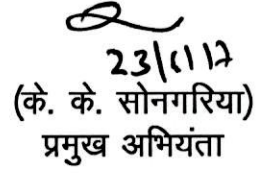 23/11/17
(के. के. सोनगरिया)
प्रमुख अभियंता